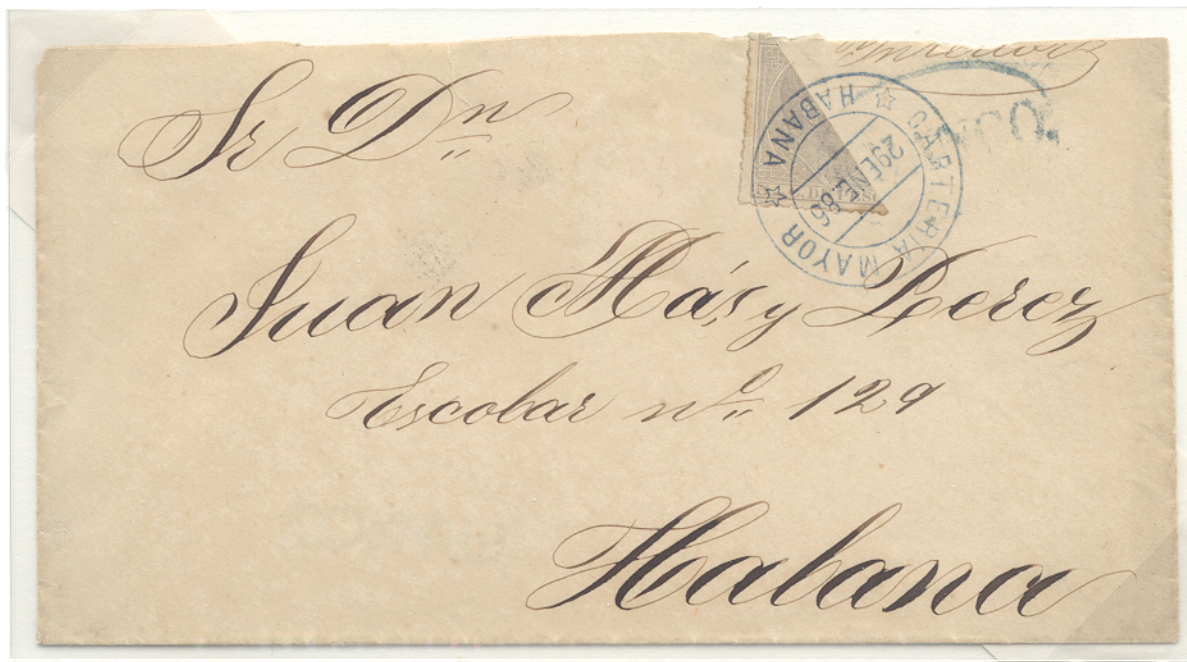 Interior
Sr Dn
CARTERIA MAYOR
HABANA
29 ENE. 86
Juan Más y Perez
Escobar no 129
Habana